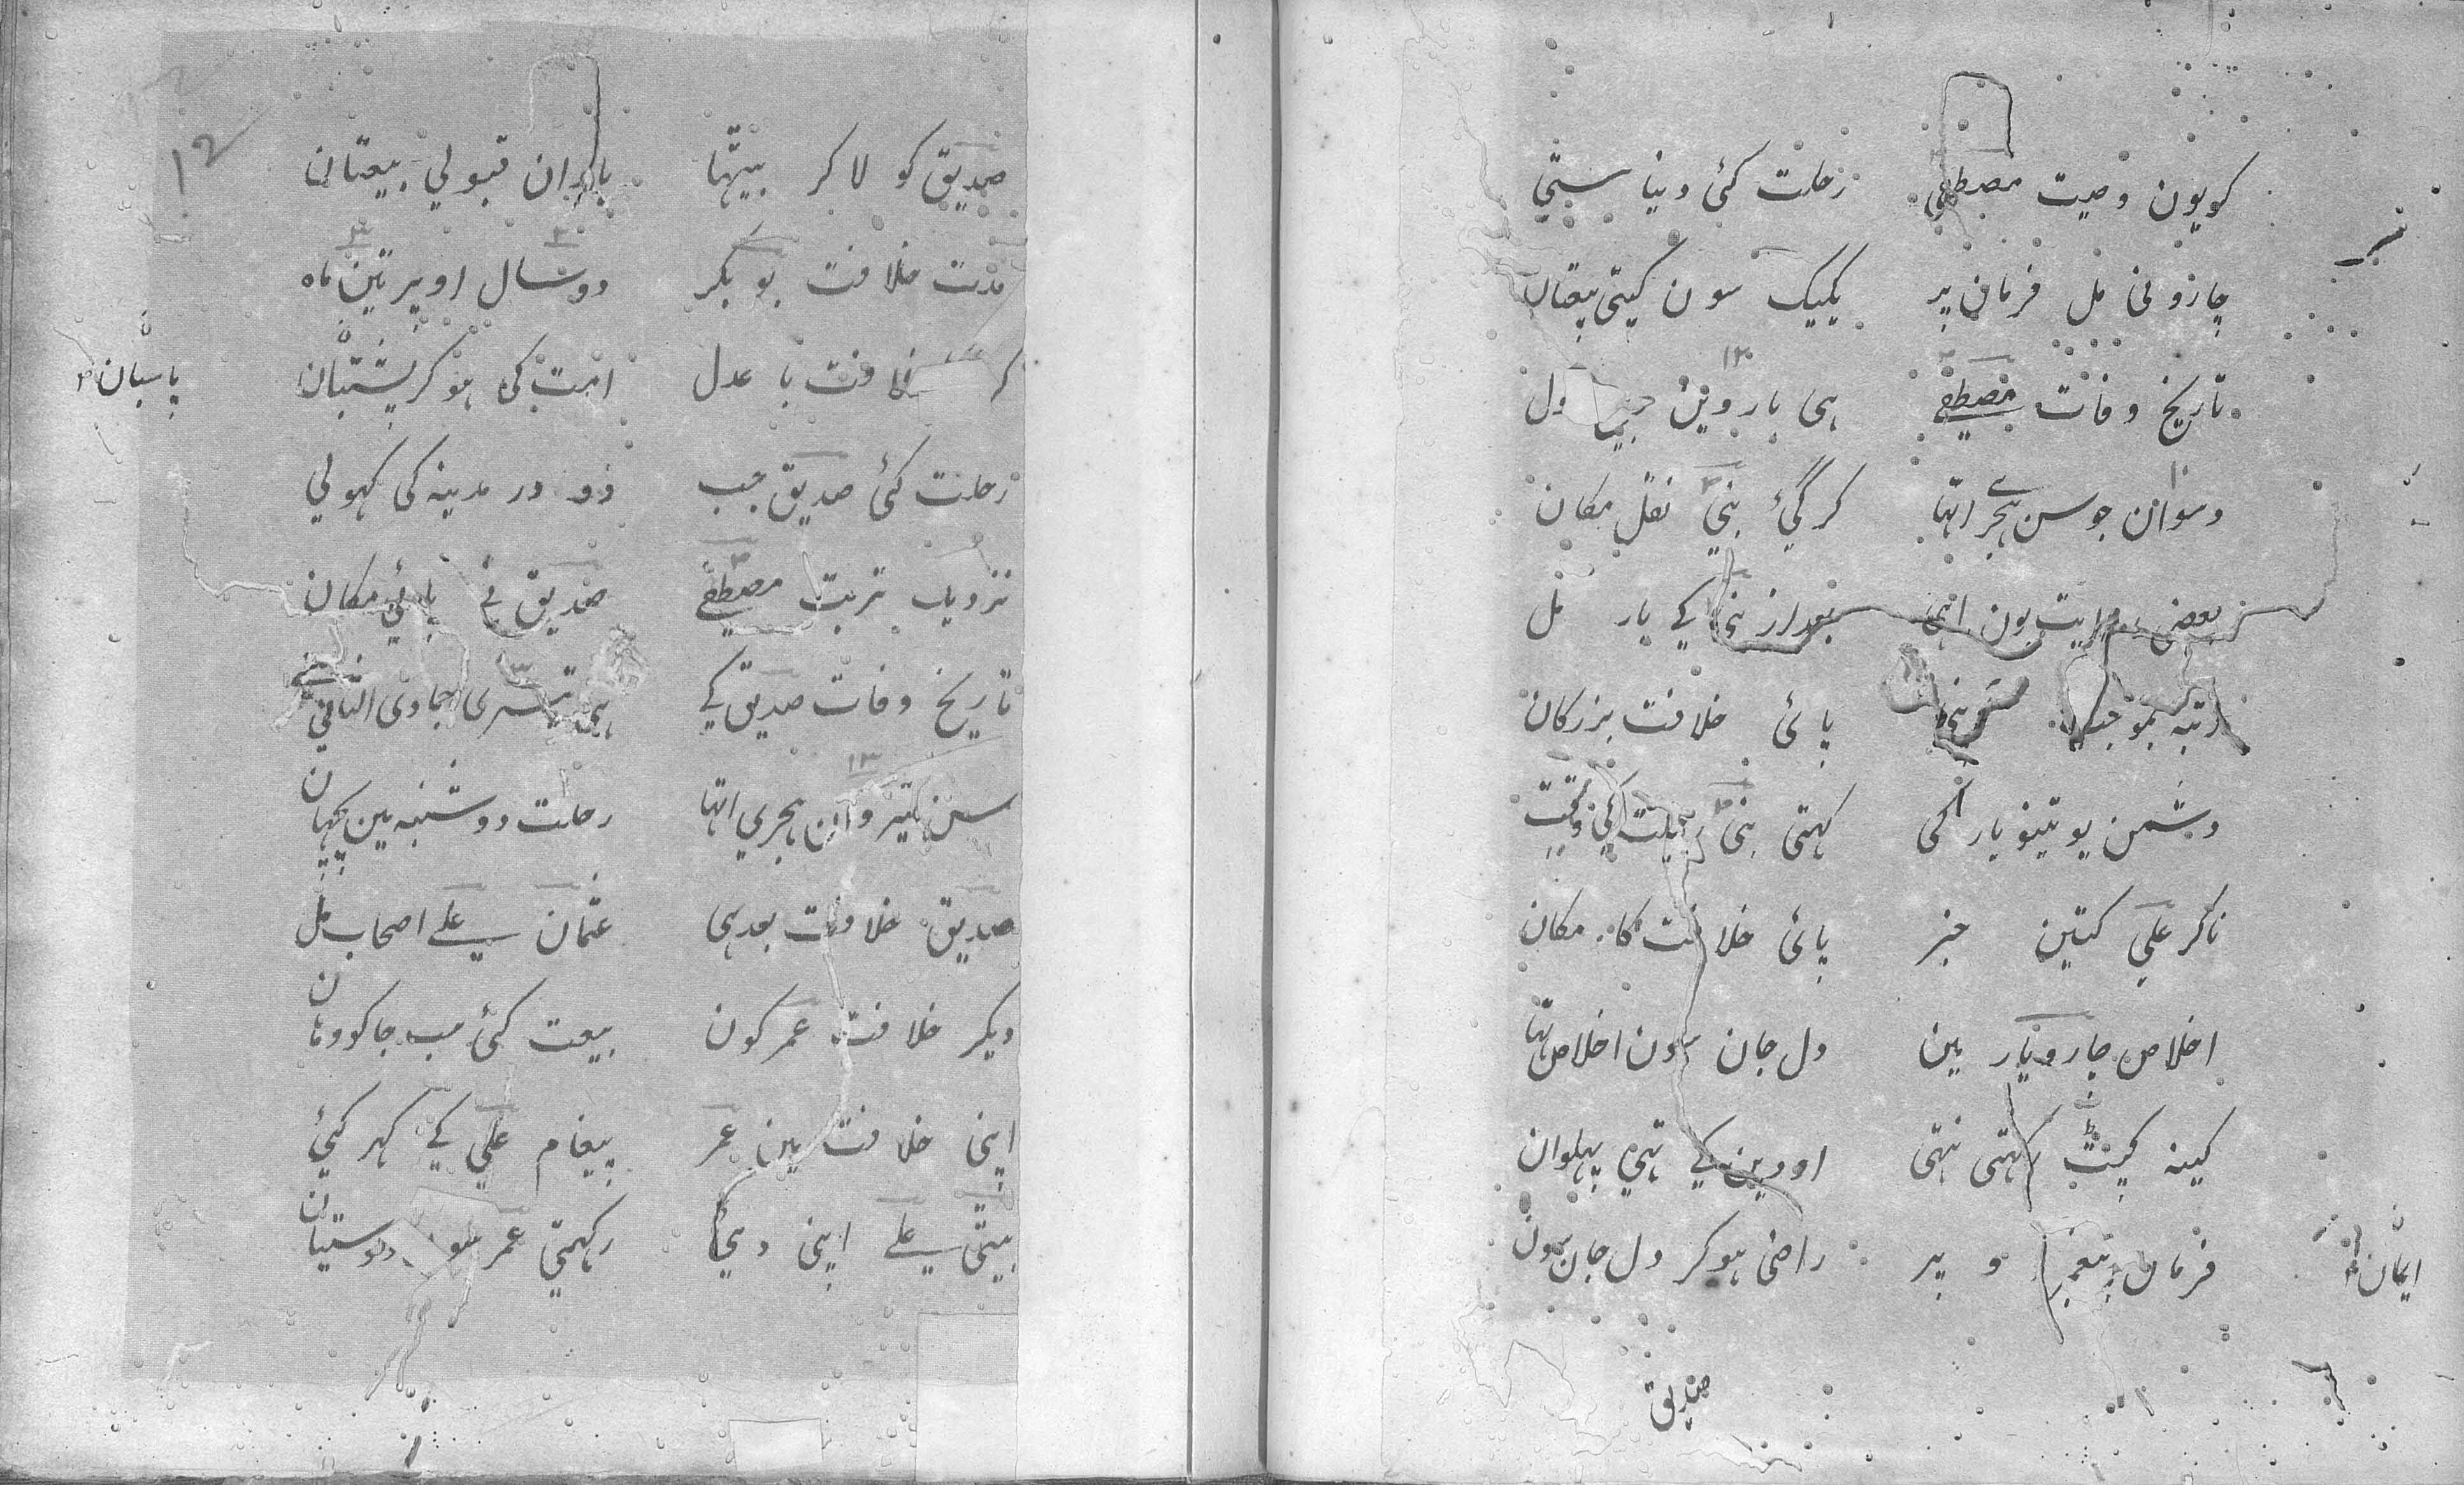 کویون وصیت مصطفی رحلت کئی دنیا ستّی
چارونی مل فرمان پر یکیک سون کیتی بیعتان
تاریخ وفات مصطفےٰ ہی باروین ول
۱۲
دسوان جو سن ہجر اتہا کر گئی بنی نقل مکان
بعضی روایت یون اہی بعد از بنی کے یار مل
رتبہ بموجب پائی خلافت بزرکان
دشمن یو تینو یار کی کہتی بنی رحلت کی وقت
ناکر علی کتین خبر پائی خلافت کا مکان
اخلاص چارو یار مین دل جان سون اخلاص تہا
کینہ کپٹ رکہتی نہتی او دین کے تہی پہلوان
فرمان پیغمبر و پر راضی ہوکر دل جان سون
ایمان
صدیق
۱۲
صدیق کو لا کر بیتہا یاران قبولی بیعتان
مدت خلافت بو بکر دو سال اوپر تین ماہ
خلافت با عدل امت کی ہو کر پشتبان
پاسبان
رحلت کئی صدیق جب در مدینہ کی کہولی
نزدیک تربت مصطفےٰ صدیق نے پائی مکان
تاریخ وفات صدیق کے ہی تیسری جمادی الثانی
۱۳
سن تیروان ہجری اتہا رحلت دوشنبہ مین پچہان
صدیق خلافت بعد ہی عثمان علی اصحاب مل
دیکر خلافت عمر کون بیعت کئی سب جا کو وہان
اپنی خلافت مین عمر پیغام علی کے کہر کئی
بیتی علی اپنی دی رکہتی عمر سو دوستیان